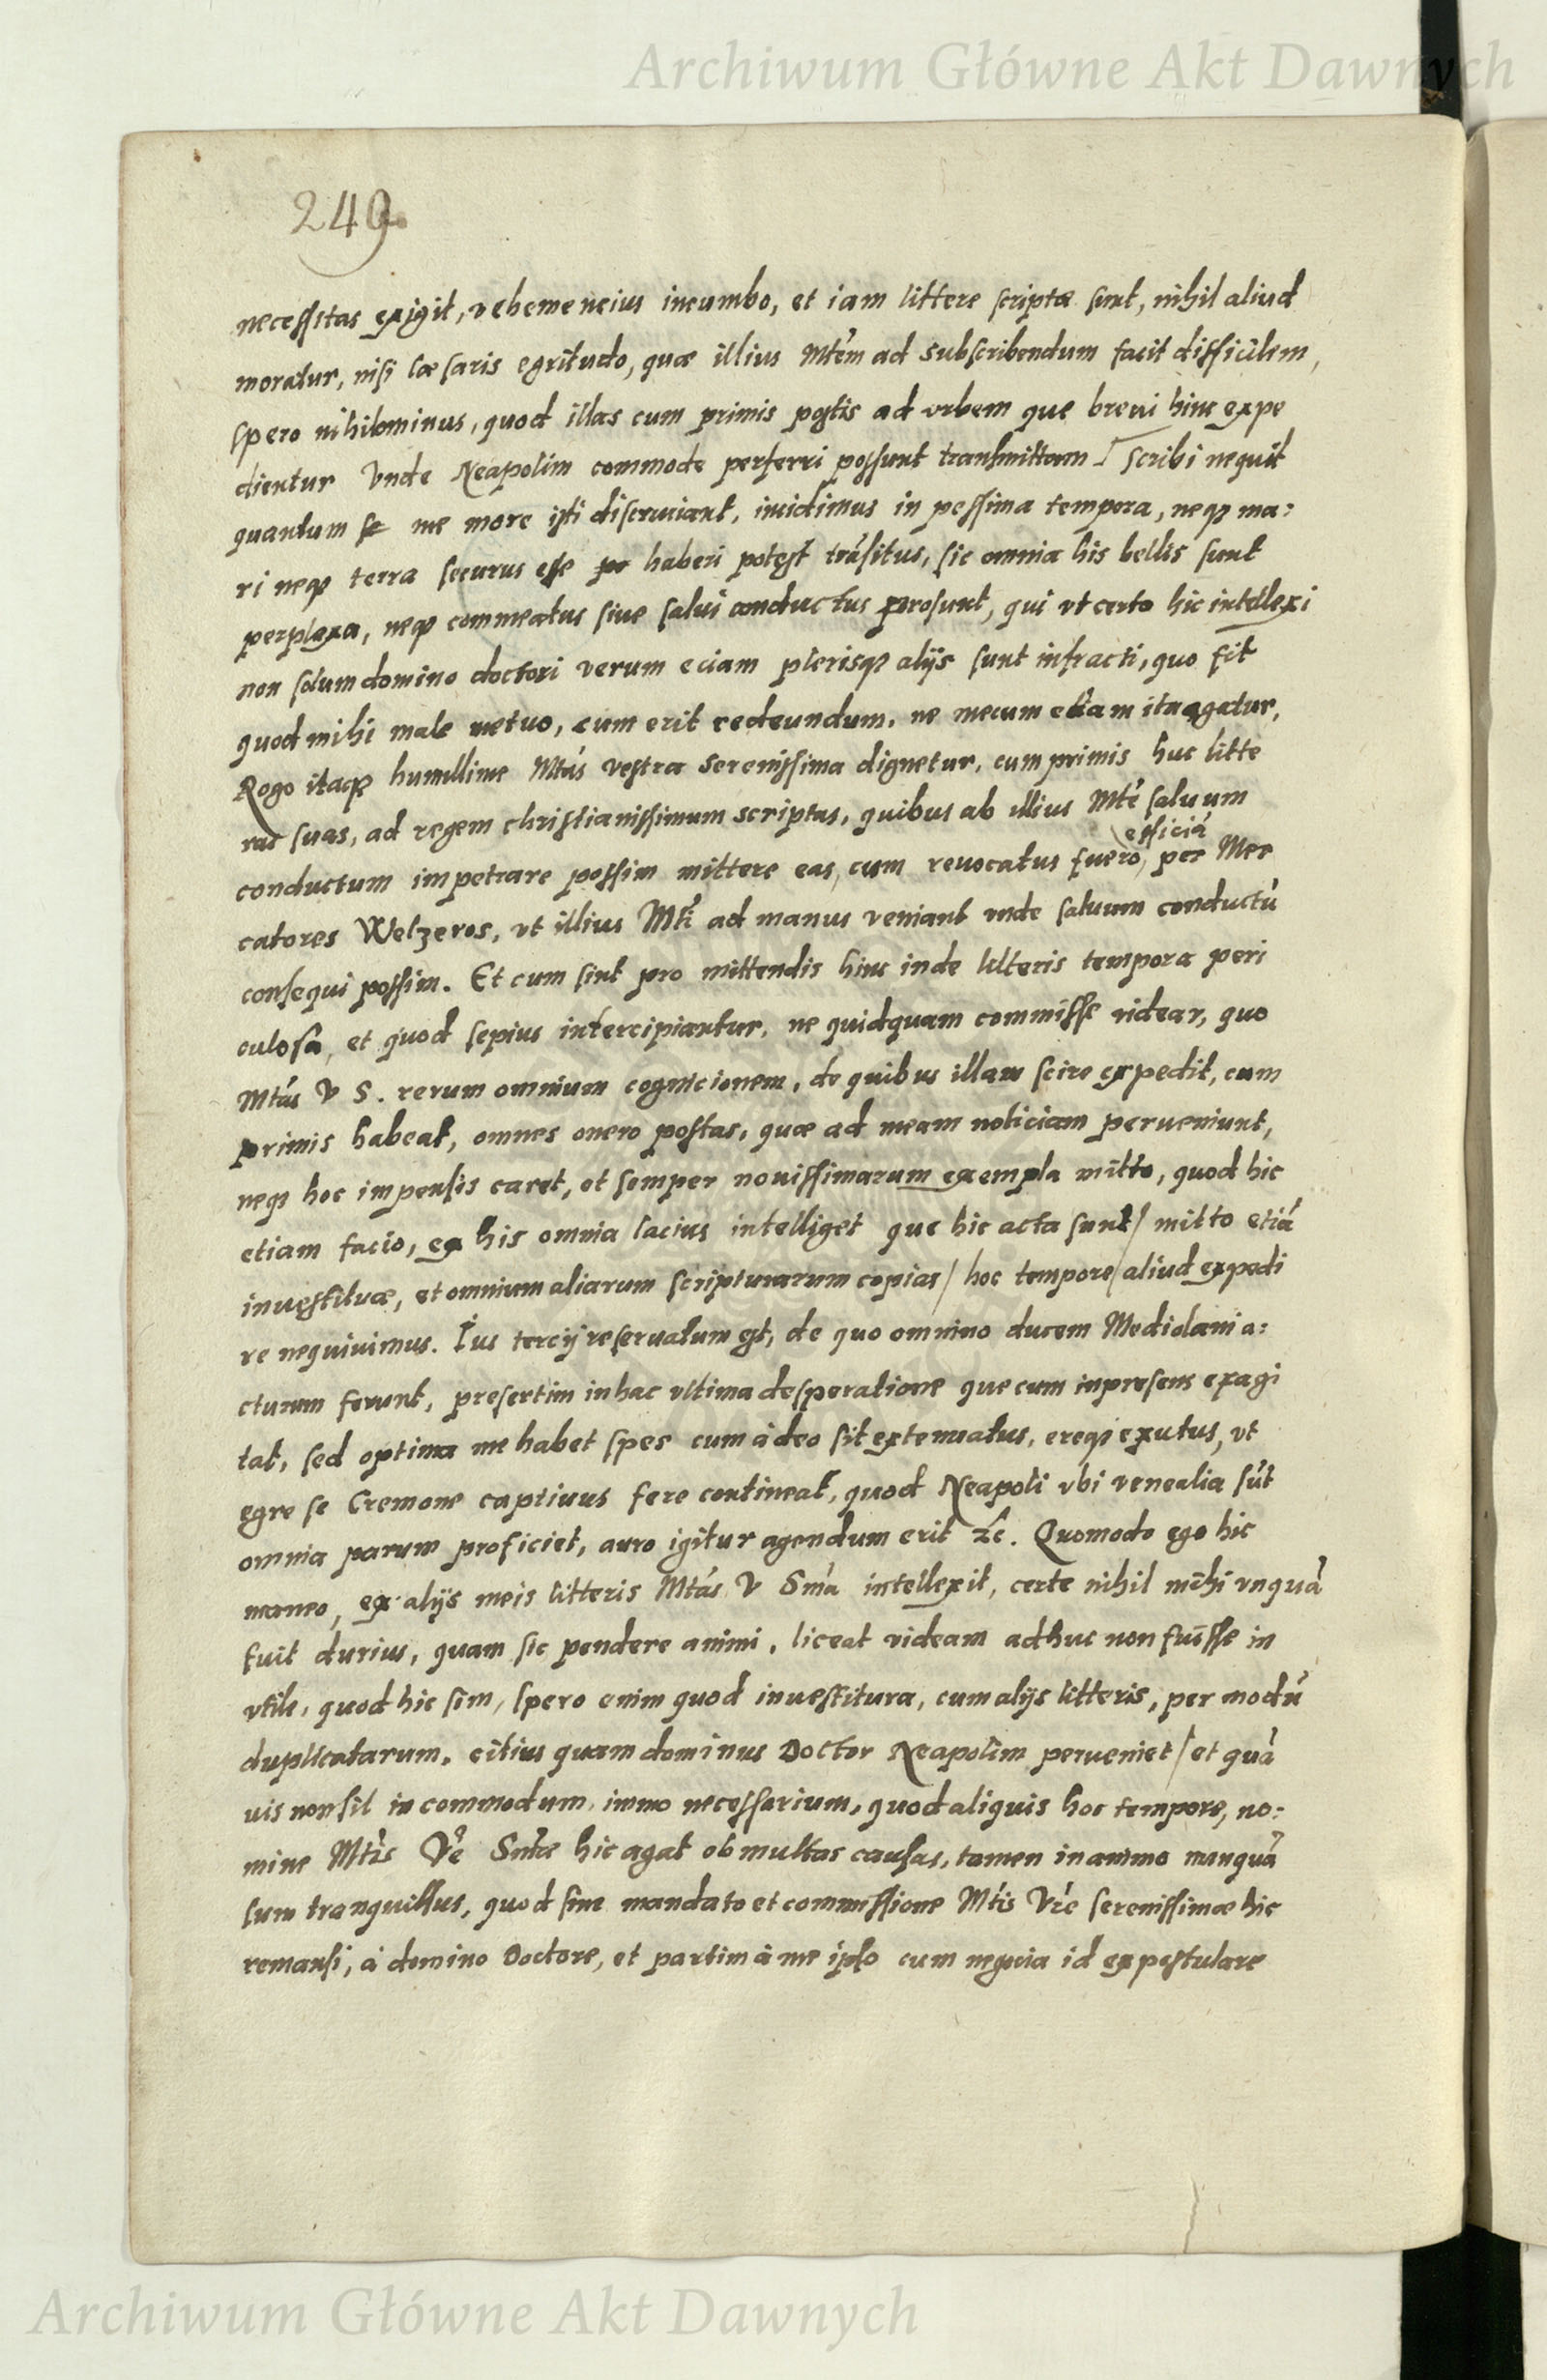 Archiwum Główne Akt Dawnych
249.
necessitas exigit, vehemencius incumbo, et iam littere scriptæ sunt, nihil aliud
moratur, nisi cæsaris egritudo, quæ illius Mtēm ad subscribendum facit difficilem,
spero nihilominus, quod illas cum primis postis ad urbem que brevi hinc expe
dientur Vnde Neapolim commode perferri possunt transmittam / Scribi nequit
quantum se me more isti discruciant, incidimus in pessima tempora, neqȝ ma:
ri neqȝ terra securus esse po haberi potest trāsitus, sic omnia his bellis sunt
perplexa, neqȝ commeatus sive salvi conductus prosunt, qui vt certo hic intellexi
non solum domino doctori verum eciam plerisqȝ alijs sunt infracti, quo fit
quod mihi male metuo, cum erit redeundum, ne mecum etiam ita agatur,
Rogo itaqȝ humillime Mtás vestra Serenissima dignetur, cum primis huc litte
ras suas, ad regem christianissimum scriptas, quibus ab illius Mtē salvum
efficiā
conductum impetrare possim mittere eas, cum revocatus fuero, per Mer
catores Welzeros, vt illius Mti ad manus veniant unde salvum conductū
consequi possim. Et cum sint pro mittendis hinc inde litteris tempora peri
culosa, et quod sepius intercipiantur, ne quidquam commisse videar, quo
Mtás V S. rerum omnium cognicionem, de quibus illam scire expedit, cum
primis habeat, omnes onero postas, quæ ad meam noticiam perveniunt,
neqȝ hoc impensis caret, et semper novissimarum exempla mitto, quod hic
etiam facio, ex his omnia lacius intelliget que hic acta sunt / mitto etiā
investituræ, et omnium aliarum scripturarum copias / hoc tempore / aliud expedi
re nequivimus. Ius tercij reservatum est, de quo omnino ducem Mediolani a:
cturum ferunt, presertim in hac vltima desperatione que cum in presens exagi
tat, sed optima me habet spes cum ádeo sit extenuatus, ereqȝ exutus, vt
egre se Cremone captivus fere contineat, quod Neapoli vbi venealia sūt
omnia parum proficiet, auro igitur agendum erit ⁊c. Quomodo ego hic
maneo, ex alijs meis litteris Mtás V Smā intellexit, certe nihil mihi vnquā
fuit durius, quam sic pendere animi, liceat videam adhuc non fuisse in
vtile, quod hic sim, spero enim quod investitura, cum alijs litteris, per modū
duplicatarum, citius quam dominus Doctor Neapolim perveniet / et quā
vis non sit in commodum, immo necessarium, quod aliquis hoc tempore, no:
mine Mtis Vē Smæ hic agat ob multas causas, tamen in animo nunquā
sum tranquillus, quod sine mandato et commissione Mtis Vrē serenissimæ hic
remansi, á domino Doctore, et partim á me ipso cum negocia id expostulare
Archiwum Główne Akt Dawnych